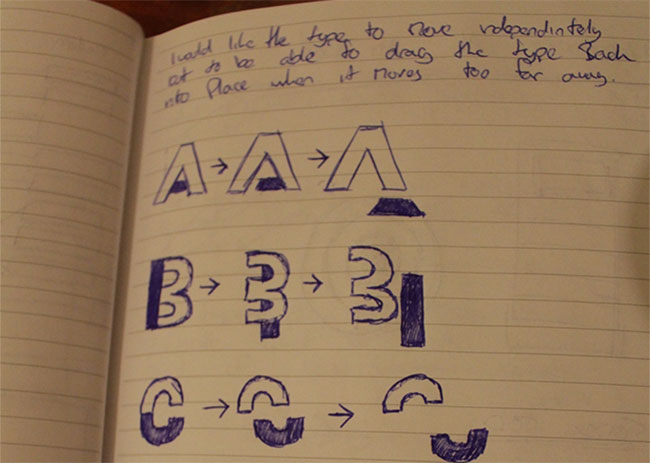 I would like the type to move independintely
but to be able to drag the type Back
into Place when it moves too far away.
A → A → A
B → B → B
C → C → C